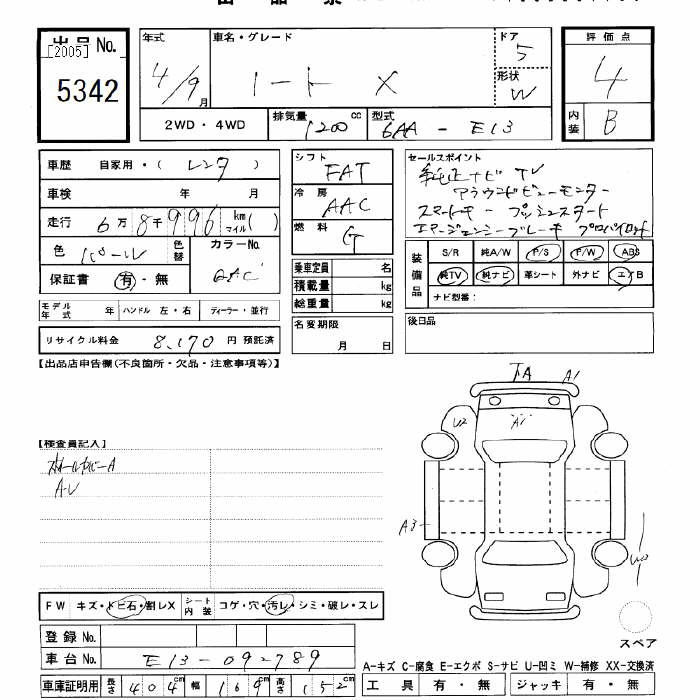 出品No.
[2005]
5342
年式
4/9月
車名・グレード
ノート X
ドア
5
形状
W
評価点
4
内装
B
2WD・4WD
排気量 1200 cc
型式 6AA - E13
車歴 自家用・( レンタ )
車検 年 月
走行 6万8千996 km マイル( )
色 パール 色替
カラーNo.
QAC
保証書 有・無
シフト
FAT
冷房
AAC
燃料
G
乗車定員 名
積載量 kg
総重量 kg
名変期限
月 日
セールスポイント
純正ナビ TV
アラウンドビューモニター
スマートキー プッシュスタート
エマージェンシーブレーキ プロパイロット
装備品
S/R 純A/W P/S P/W ABS
純TV 純ナビ 革シート 外ナビ エアB
ナビ型番:
後日品
モデル年式 年 ハンドル 左・右 ディーラー・並行
リサイクル料金 8,170 円 預託済
【出品店申告欄(不良箇所・欠品・注意事項等)】
【検査員記入】
A-U
A1
A1
U2
A3
FW キズ・トビ石・割レX シート内装 コゲ・穴・汚レ・シミ・破レ・スレ
登録No.
車台No. E13-092789
車庫証明用 長さ 404cm 幅 169cm 高さ 152cm
スペア
A-キズ C-腐食 E-エクボ S-サビ U-凹ミ W-補修 XX-交換済
工具 有・無 ジャッキ 有・無